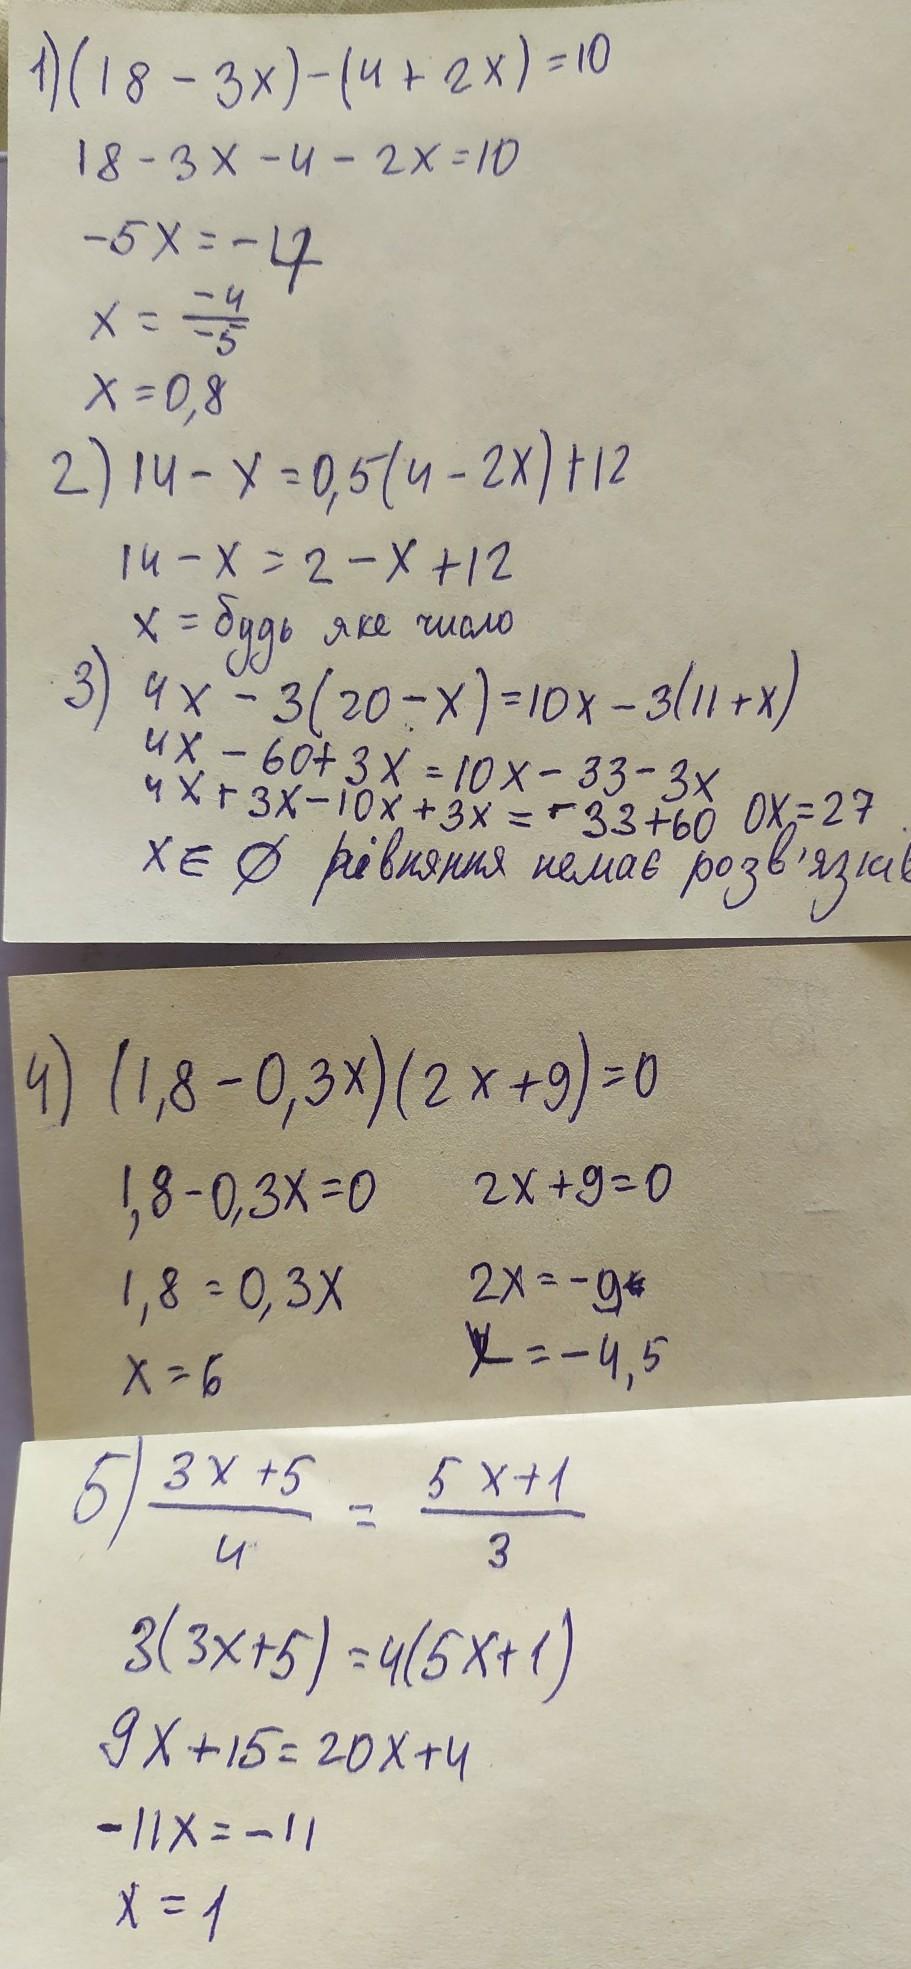 1) (18 - 3x) - (4 + 2x) = 10
18 - 3x - 4 - 2x = 10
-5x = -4
x = -4/-5
x = 0,8
2) 14 - x = 0,5(4 - 2x) + 12
14 - x = 2 - x + 12
x = будь яке число
3) 4x - 3(20 - x) = 10x - 3(11 + x)
4x - 60 + 3x = 10x - 33 - 3x
4x + 3x - 10x + 3x = -33 + 60 0x = 27
x ∈ ∅ рівняння немає розв'язків
4) (1,8 - 0,3x)(2x + 9) = 0
1,8 - 0,3x = 0 2x + 9 = 0
1,8 = 0,3x 2x = -9
x = 6 x = -4,5
5) 3x + 5/4 = 5x + 1/3
3(3x + 5) = 4(5x + 1)
9x + 15 = 20x + 4
-11x = -11
x = 1